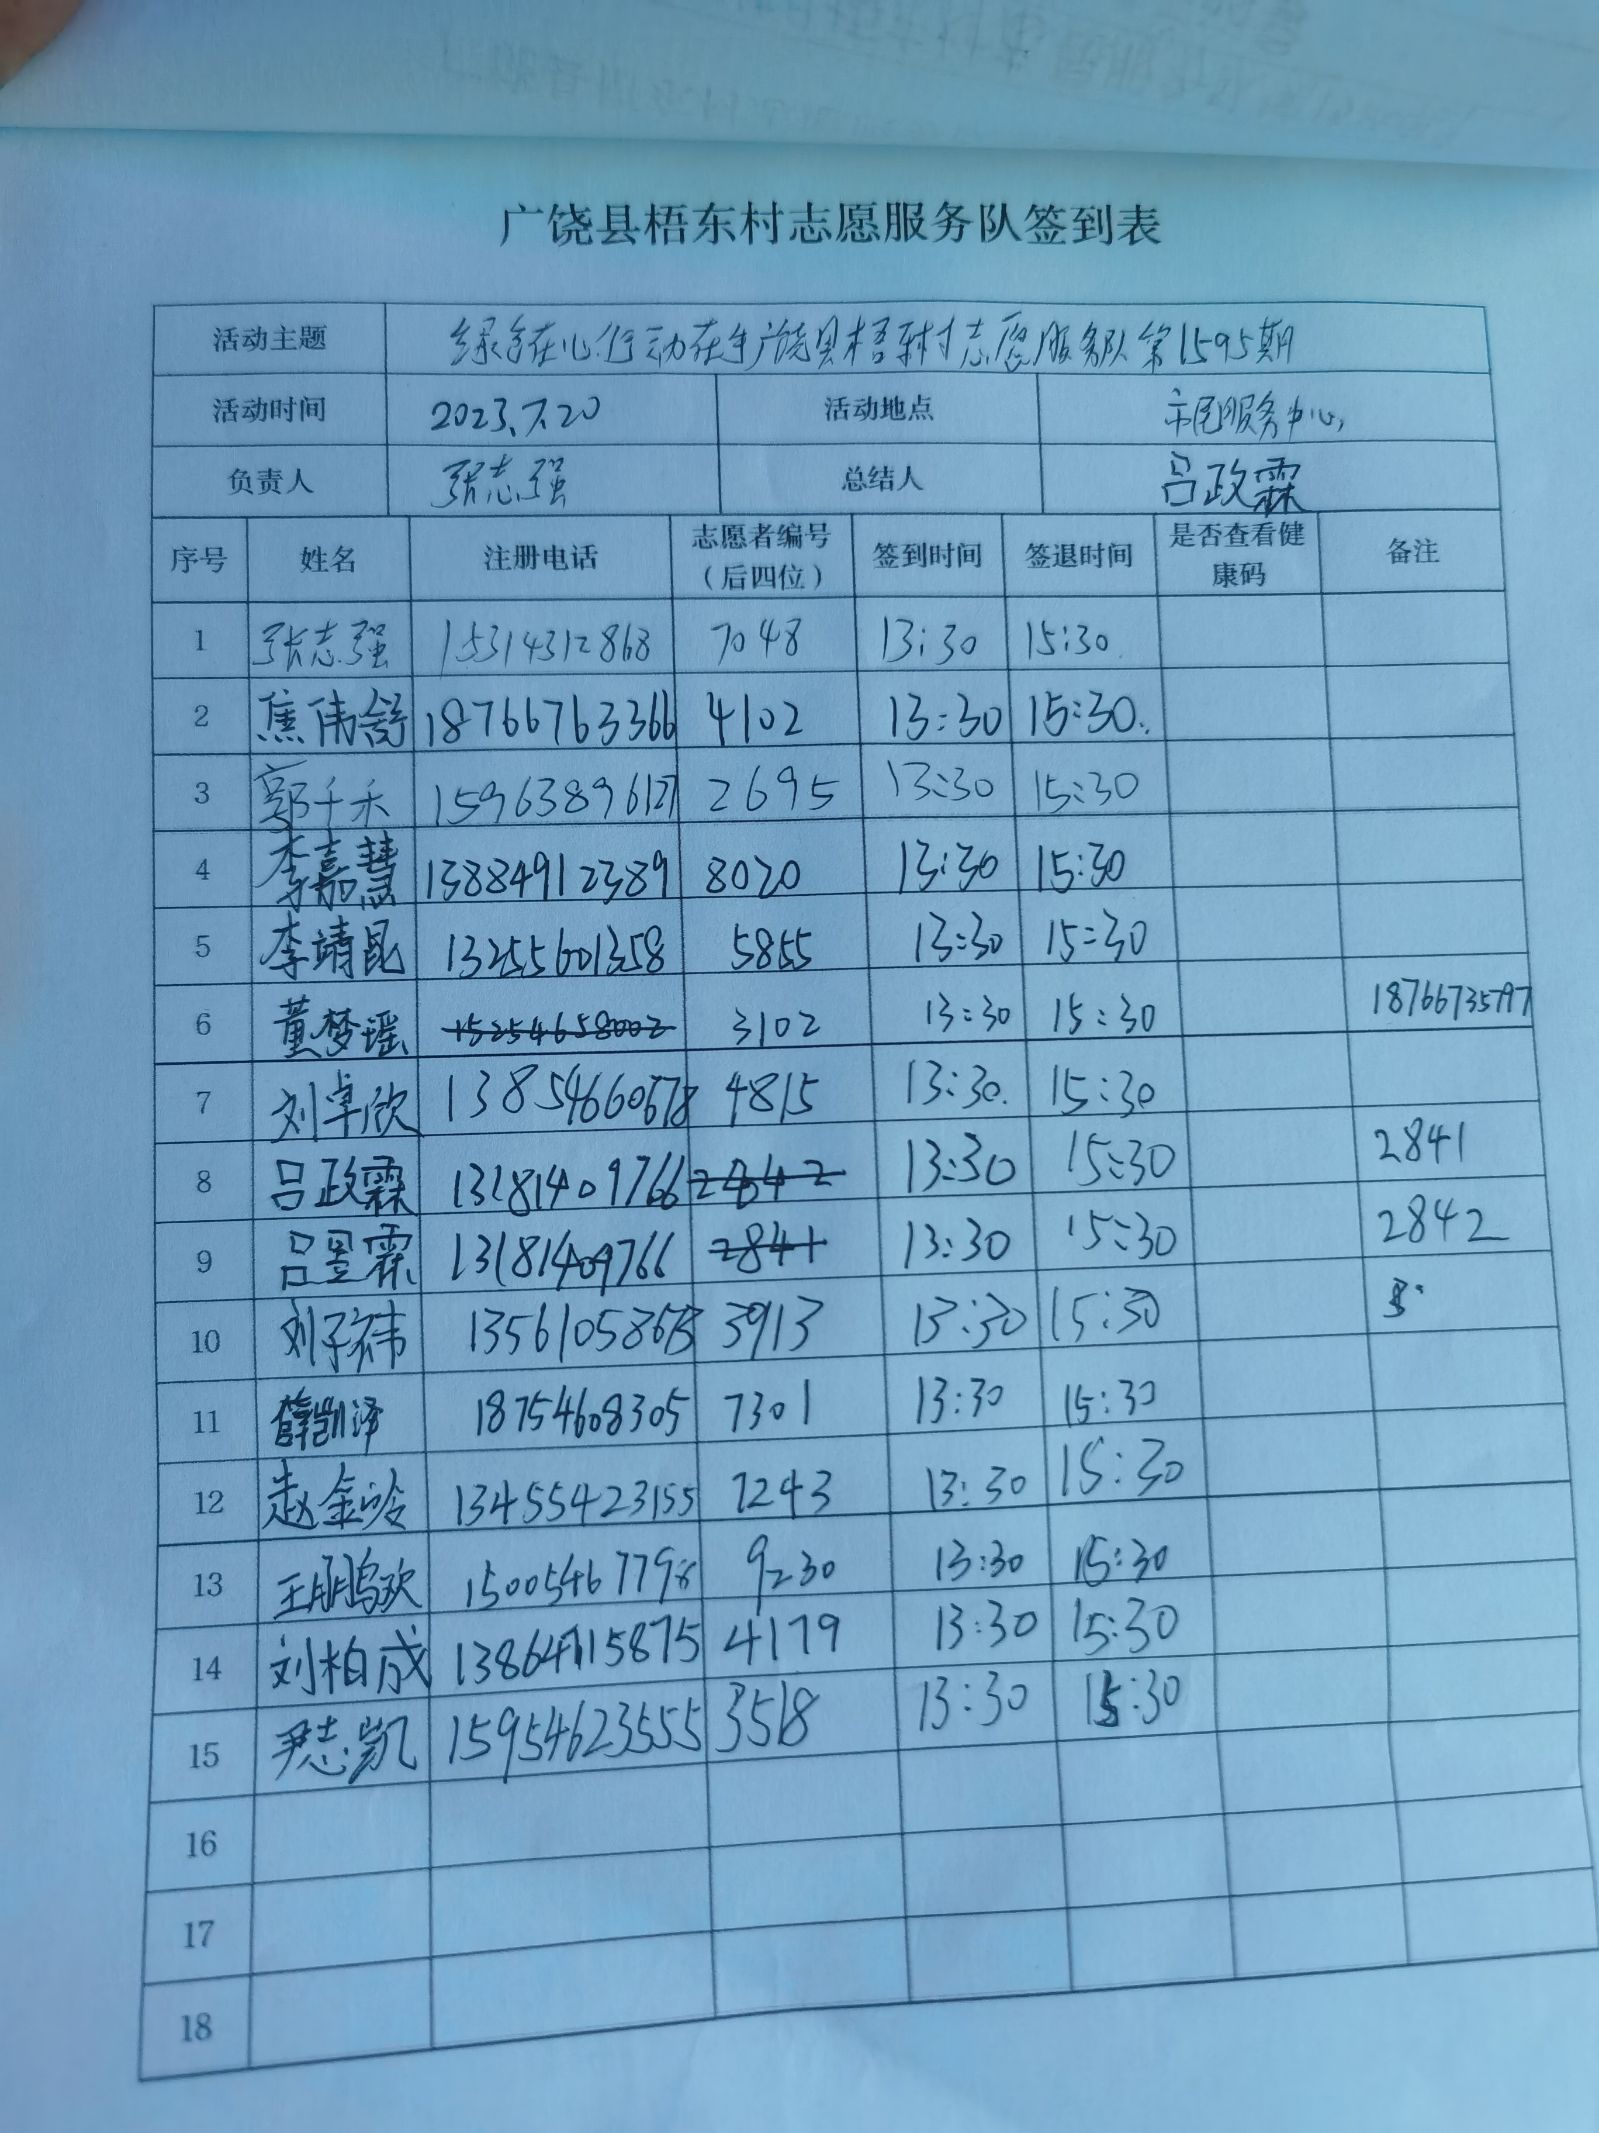 广饶县梧东村志愿服务队签到表
活动主题 绿色在心行动在手广饶县梧东村志愿服务队第1595期
活动时间 2023.7.20 活动地点 市民服务中心
负责人 张志强 总结人 吕政霖
序号 姓名 注册电话 志愿者编号（后四位） 签到时间 签退时间 是否查看健康码 备注
1 张志强 15314312868 7048 13:30 15:30
2 焦伟舒 18766763366 4102 13:30 15:30.
3 郭千禾 15963896127 2695 13:30 15:30
4 李嘉慧 13884912389 8020 13:30 15:30
5 李靖昆 13255601358 5855 13:30 15:30
6 董梦瑶 15254658002 3102 13:30 15:30 18766735797
7 刘卓欣 13854660678 4815 13:30. 15:30
8 吕政霖 13181409766 2842 13:30 15:30 2841
9 吕昱霖 13181409766 2841 13:30 15:30 2842
10 刘子祎 13561058673 3913 13:30 15:30
11 薛凯泽 18754608305 7301 13:30 15:30
12 赵金玲 13455423155 7243 13:30 15:30
13 王鹏欢 15005467798 9230 13:30 15:30
14 刘柏成 13864715875 4179 13:30 15:30
15 尹志凯 15954623555 3518 13:30 15:30
16
17
18